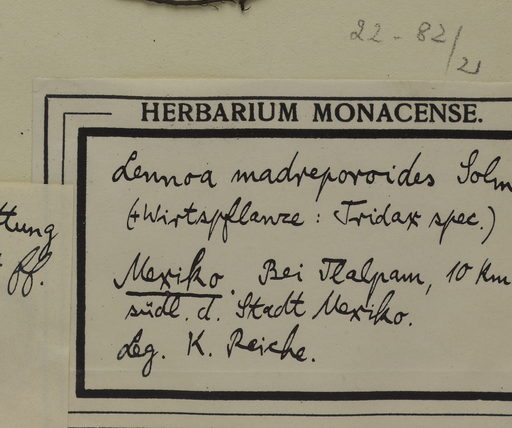 22-82/21
HERBARIUM MONACENSE.
Lennoa madreporoides Solm
(+Wirtspflanze : Tridax spec.)
Mexiko. Bei Tlalpam, 10 Km
südl. d. Stadt Mexiko.
Leg. K. Reiche.
ttung
ff.